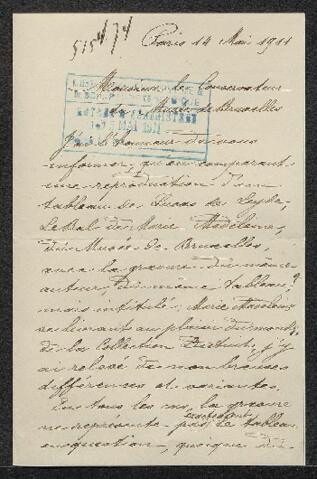 5154/74
Paris 14 Mai 1911
Monsieur le Conservateur
du Musée de Bruxelles
J'ai l'honneur de vous
informer, qu'en comparant
une reproduction d'un
tableau de Lucas de Leyde,
Le Bal de Marie Madeleine,
du Musée de Bruxelles,
avec la gravure du même
auteur, du même tableau?
mais intitulé, Marie Madeleine
se livrant au plaisir du monde,
de la Collection Dutuit, j'y
ai relevé de nombreuses
différences et variantes.
En tous les cas, la gravure
ne représente pas exactement le tableau
en question, quoique